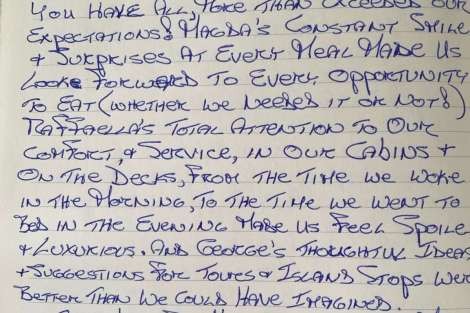 YOU HAVE ALL MORE THAN EXCEEDED OUR
EXPECTATIONS! MAGDA'S CONSTANT SMILE
& SURPRISES AT EVERY MEAL MADE US
LOOK FORWARD TO EVERY OPPORTUNITY
TO EAT (WHETHER WE NEEDED IT OR NOT!)
RAFFAELLA'S TOTAL ATTENTION TO OUR
COMFORT, & SERVICE, IN OUR CABINS &
ON THE DECKS, FROM THE TIME WE WOKE
IN THE MORNING, TO THE TIME WE WENT TO
BED IN THE EVENING MADE US FEEL SPOILE
& LUXURIOUS. AND GEORGE'S THOUGHTFUL IDEAS
& SUGGESTIONS FOR TOURS & ISLAND STOPS WER
BETTER THAN WE COULD HAVE IMAGINED.